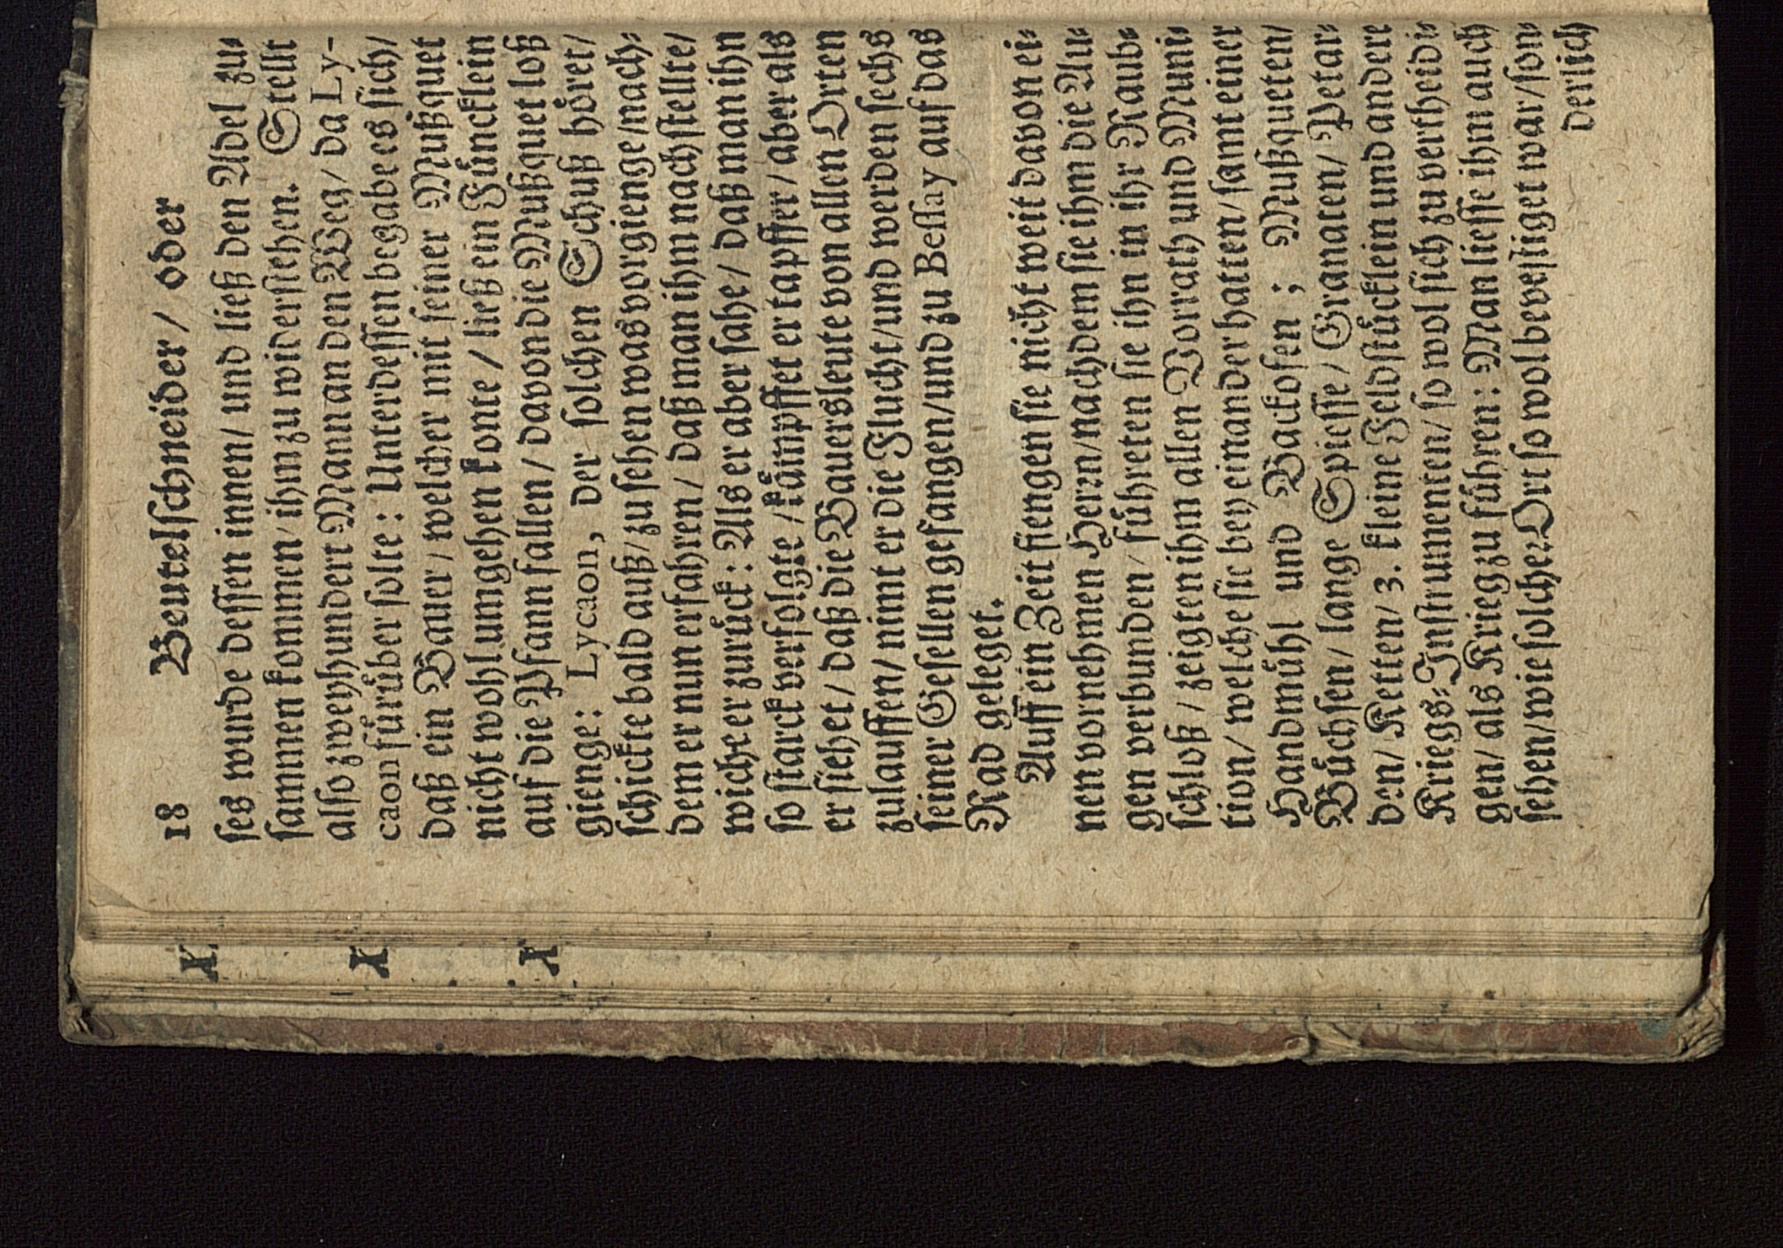 18 Beutelschneider / oder
ses wurde dessen innen/ und ließ den Adel zu-
sammen kommen/ ihm zu widerstehen. Stellt
also zweyhundert Mann an den Weg/ da Ly-
caon fürüber solte: Unterdessen begabe es sich/
daß ein Bauer/ welcher mit seiner Mußquet
nicht wohl umgehen konte / ließ ein Füncklein
auf die Pfann fallen/ davon die Mußquet loß
gienge: Lycaon, der solchen Schuß höret/
schickte bald auß/ zu sehen was vorgienge/nach-
dem er nun erfahren/ daß man ihm nachstellte/
wiche er zurück: Als er aber sahe/ daß man ihn
so starck verfolgte /kämpffet er tapffer/ aber als
er siehet/ daß die Bauersleute von allen Orten
zulauffen/ nimt er die Flucht/und werden sechs
seiner Gesellen gefangen/und zu Bessay auf das
Rad geleget.
Auff ein Zeit fiengen sie nicht weit davon ei-
nen vornehmen Herrn/nachdem sie ihm die Au-
gen verbunden/ führeten sie ihn in ihr Raub-
schloß / zeigten ihm allen Vorrath und Muni-
tion/ welche sie bey einander hatten/ samt einer
Handmühl und Backofen ; Mußqueten/
Büchsen/ lange Spiesse/ Granaten/ Petar-
den/ Ketten/ 3. kleine Feldstücklein und andere
Kriegs-Instrumenten/ so wol sich zu vertheidi-
gen/ als Krieg zu führen: Man liesse ihm auch
sehen/wie solcher Ort so wol bevestiget war/son-
derlich